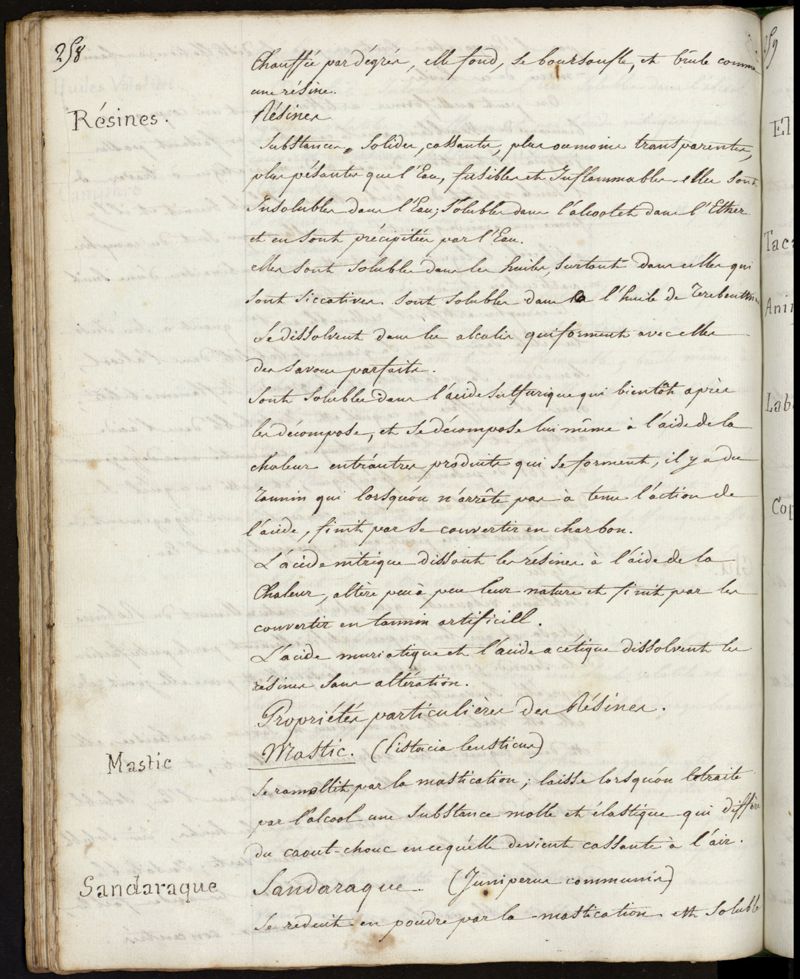 258
Chauffée par dégrés, elle fond, se boursoufle, et brule comme
une résine.
Résines.
Résines
Substances solides, cassantes, plus ou moins transparentes,
plus pésantes que l'Eau, fusibles et Inflammables elles sont
Insolubles dans l'Eau; Solubles dans l'alcool et dans l'Ether
et en sont précipitées par l'Eau.
elles sont solubles dans les huiles surtout dans celles qui
sont siccatives sont solubles dans la l'huile de Terebenthine
Se dissolvent dans les alcalis qui forment avec elles
des savons parfaits.
Sont solubles dans l'acide sulfurique qui bientôt après
les décompose, et se décompose lui même à l'aide de la
chaleur entr'autres produits qui se forment, il y a du
Tannin qui lorsqu'on n'arrête pas a tems l'action de
l'acide, finit par se convertir en charbon.
L'acide nitrique dissout les résines à l'aide de la
Chaleur, altère peu à peu leur nature et finit par les
convertir en tannin artificiell.
L'acide muriatique et l'acide acétique dissolvent les
résines sans altération.
Propriétés particulières des Résines.
Mastic
Mastic. (Pistacia lentiscus)
Se ramollit par la mastication; laisse lorsqu'on le traite
par l'alcool une substance molle et élastique qui diffère
du caout-chouc en ce qu'elle devient cassante à l'air.
Sandaraque
Sandaraque. (Juniperus communis)
Se reduit en poudre par la mastication est soluble
259
El
Taca
Anim
Lab
Cop